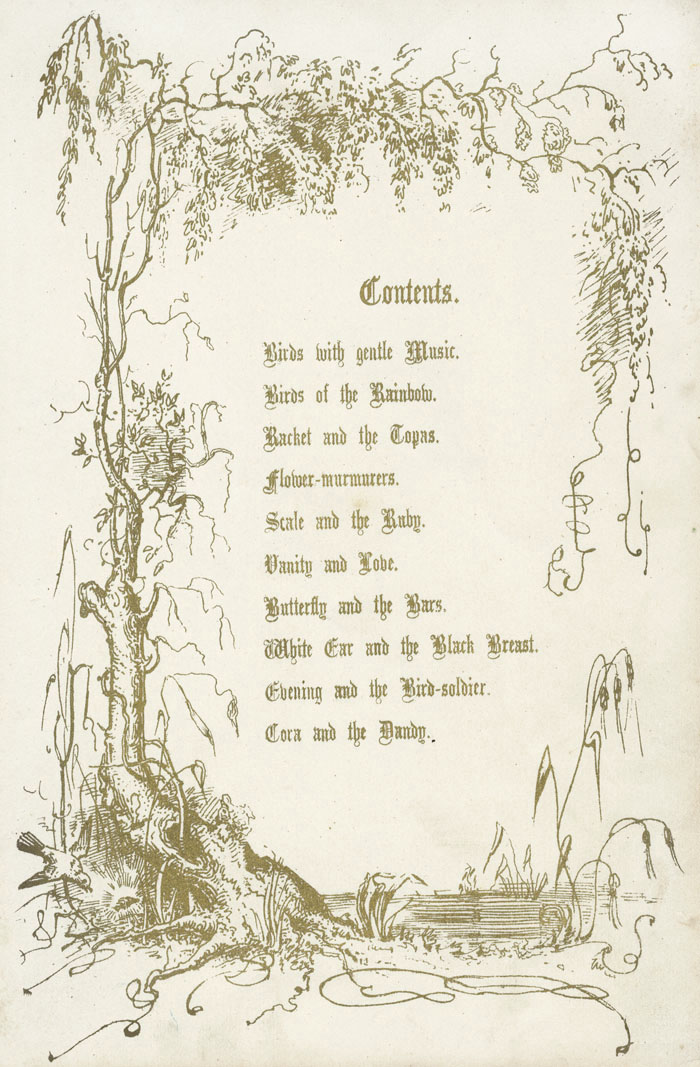 Contents.
Birds with gentle Music.
Birds of the Rainbow.
Racket and the Topas.
Flower-murmurers.
Scale and the Ruby.
Vanity and Love.
Butterfly and the Bars.
White Ear and the Black Breast.
Evening and the Bird-soldier.
Cora and the Dandy.